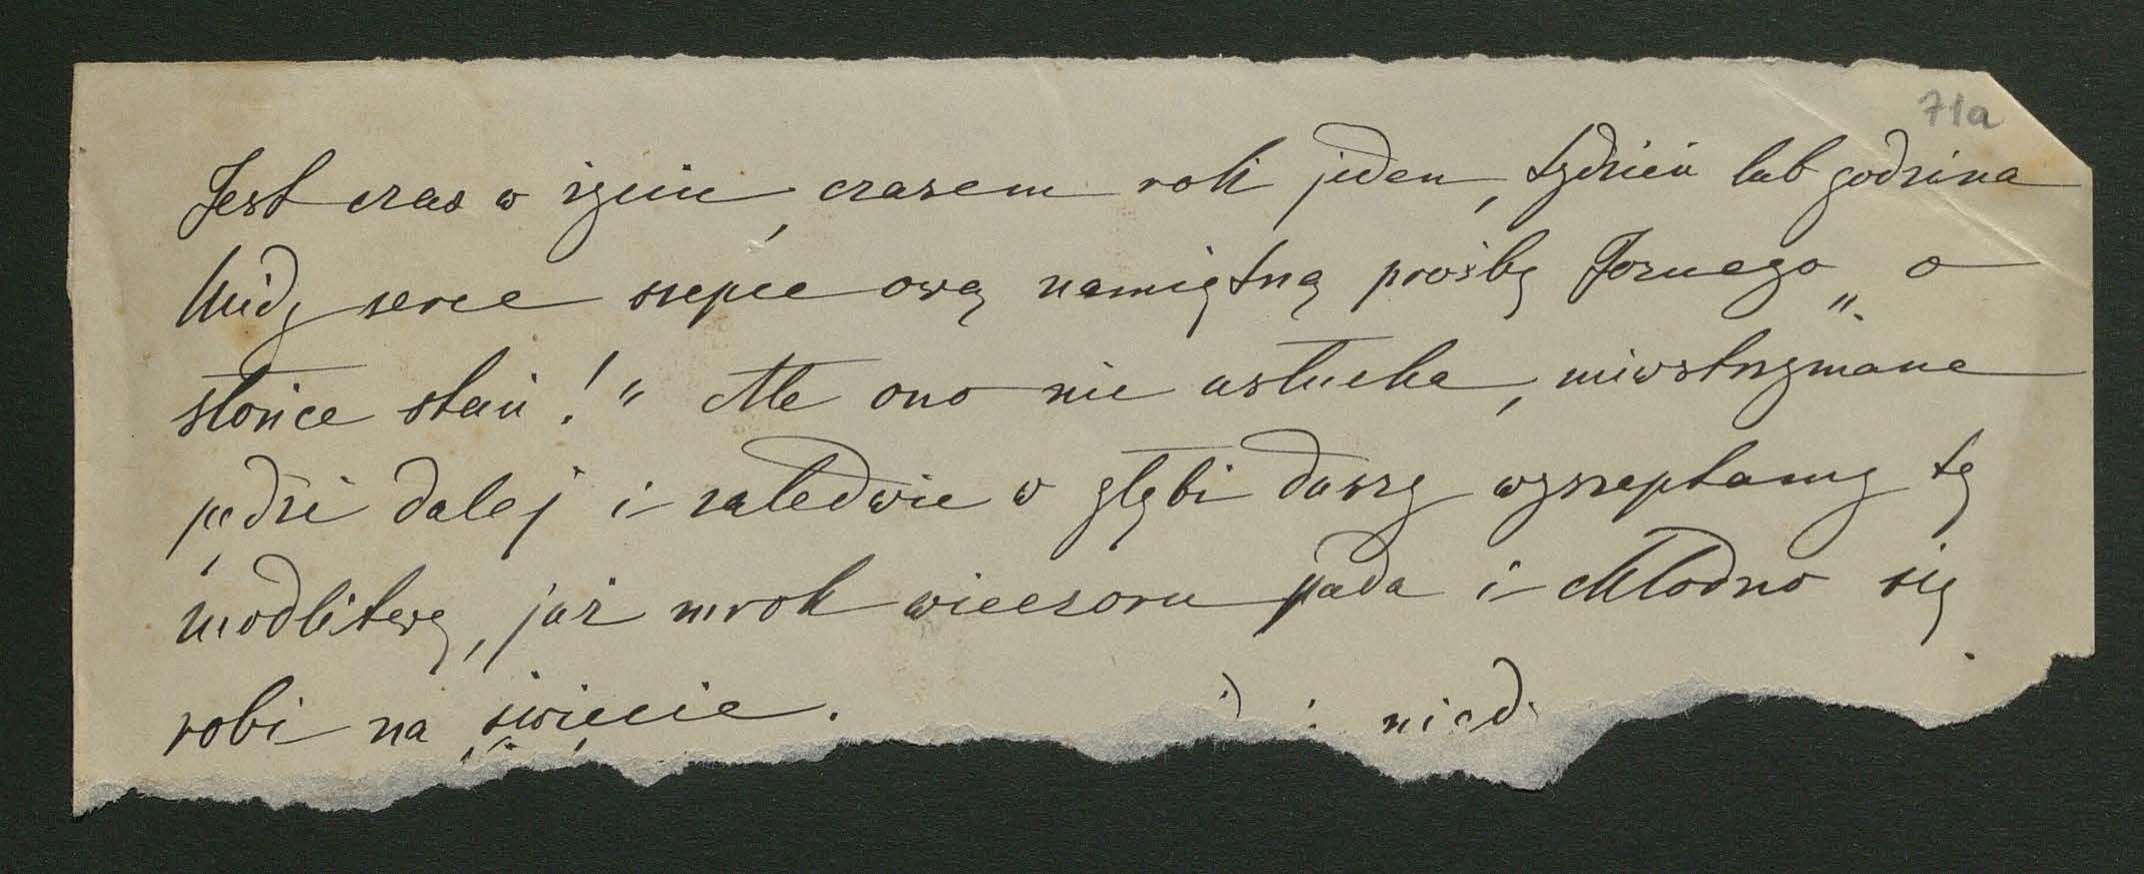 71a
Jest czas w życiu, czasem rok jeden, tydzień lub godzina
kiedy serce szepce ową namiętną prośbę Jozuego „o
słońce stań!“ Ale ono nie usłucha, niewstrzymane
pędzi dalej i zaledwie w głębi duszy wyszeptamy tę
modlitwę, już mrok wieczoru pada i chłodno się
robi na świecie.